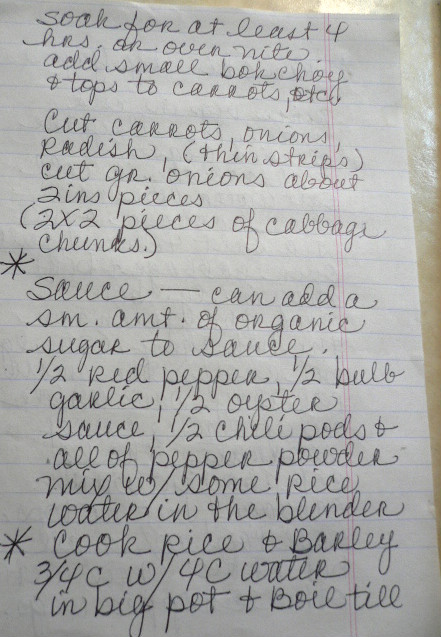 soak for at least 4
hrs. or over nite
add small bok choy
& tops to carrots, etc.
Cut carrots, onions,
Radish, (thin strips)
cut gr. onions about
2ins pieces
(2x2 pieces of cabbage
chunks.)
*
Sauce — can add a
sm. amt. of organic
sugar to sauce.
1/2 red pepper, 1/2 bulb
garlic, 1/2 oyster
sauce, 1/2 chili pods &
all of pepper powder
mix w/ some rice
water in the blender
* Cook rice & Barley
3/4 C w/ 4C water
in big pot & Boil till